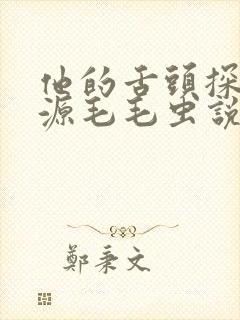 他的舌頭探
源毛毛虫說
鄭秉文